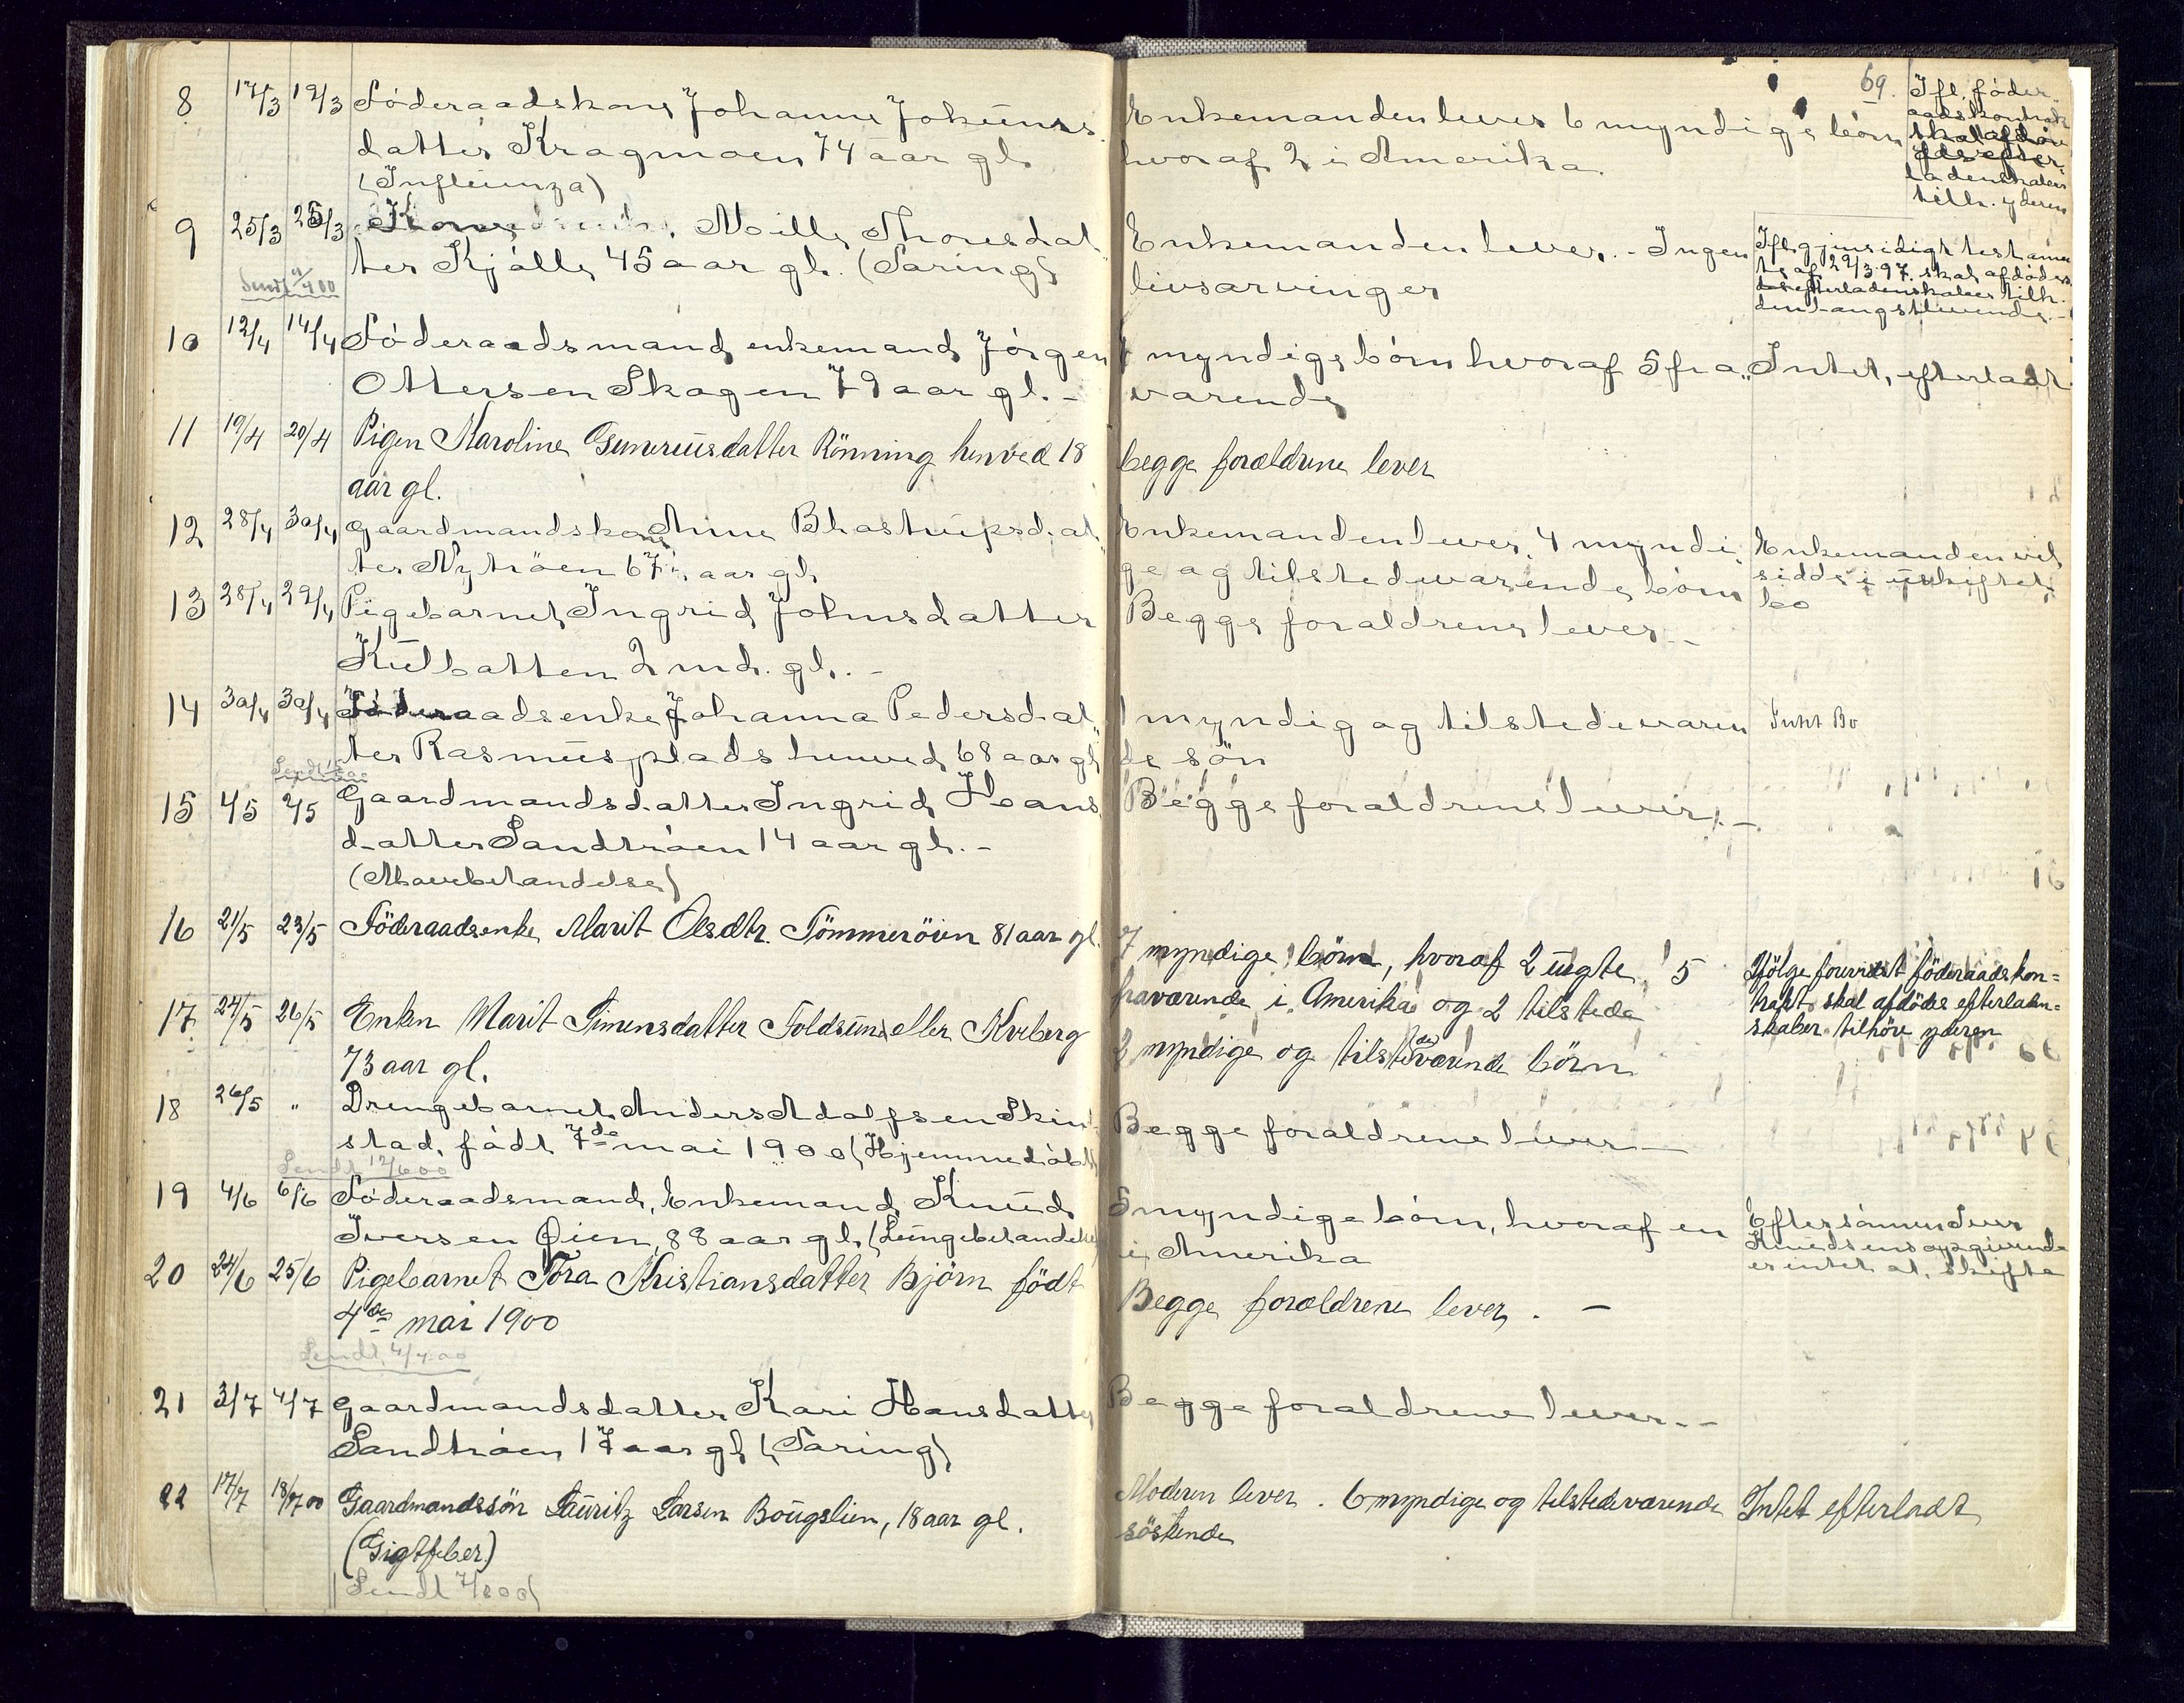 69.
8 17/3 19/3 Föderaadskone Johanne Jokums
datter Kragmoen 74 aar gl.
(Influenza)
Enkemanden lever 6 myndige börn
hvoraf 2 i Amerika.
Ifl. föder
aadskontrakt
skal afdö
des efter
ladenskaber
tilh. yderen
9 25/3 26/3 Kone Mille Thoresdat
ter Kjölle 45 aar gl. (Tæring)
Sendt 4/4 00
Enkemanden lever. - Ingen
livsarvinger
Ifl. gjensidigt testamen
te af 29/3 97. skal afdödes
efterladenskaber tilh.
den længstlevende. -
10 12/4 14/4 Föderaadsmand, enkemand Jörgen
Ottersen Skogen 79 aar gl. -
myndige börn hvoraf 5 fra„
værende
Intet, efterladt
11 19/4 20/4 Pigen Karoline Guneriusdatter Rönning henved 18
aar gl.
begge forældrene lever
12 28/4 30/4 Gaardmandskone Anne Bhastrupsdat
ter Nytröen 67 aar gl.
Enkemanden lever, 4 myndi
ge og tilstedeværende börn
Enkemanden vil
sidde i uskiftet
bo
13 28/4 29/4 Pigebarnet Ingrid Johnsdatter
Kulbatten 2 md. gl. -
Begge forældrene lever. -
14 30/4 30/4 Föderaadsenke Johanna Pedersdat
ter Rasmusplads henved 68 aar gl
1 myndig og tilstedeværen
de sön
Intet Bo
15 4/5 4/5 Gaardmandsdatter Ingrid Hans
datter Sandtröen 14 aar gl. -
(Mavebetændelse)
Begge forældrene lever. -
16 21/5 23/5 Föderaadsenke Marit Olsdtr. Tömmeröien 81 aar gl.
7 myndige börn, hvoraf 2 uegte, 5
fraværende i Amerika og 2 tilstede
Ifölge föderaadskon=
trakt skal afdödes efterladen=
skaber tilhöre yderen
17 24/5 26/5 Enken Marit Simensdatter Toldsund eller Kveberg
73 aar gl.
2 myndige og tilstedeværende börn
18 26/5 „ Drengebarnet Anders Adolfsen Skin
stad, födt 7de mai 1900 (Hjemmedöbt)
Sendt 12/6 00
Begge forældrene lever -
19 4/6 6/6 Föderaadsmand, Enkemand Knud
Iversen Öien 88 aar gl. (Lungebetændelse)
5 myndige börn, hvoraf en
i Amerika
Efter sönnen Iver
Knudsens opgivende
er intet at skifte
20 24/6 25/6 Pigebarnet Tora Kristiansdatter Björn födt
4de mai 1900
Sendt 4/7 00
Begge forældrene lever. -
21 3/7 4/7 Gaardmandsdatter Kari Hansdatter
Sandtröen 17 aar gl. (Tæring)
Begge forældrene lever. -
22 17/7 18/7 00 Gaardmandssön Lauritz Larsen Bougslien, 18 aar gl.
(Gigtfeber)
Sendt 7/8 00
Moderen lever. 6 myndige og tilstedeværende
söskende
Intet efterladt